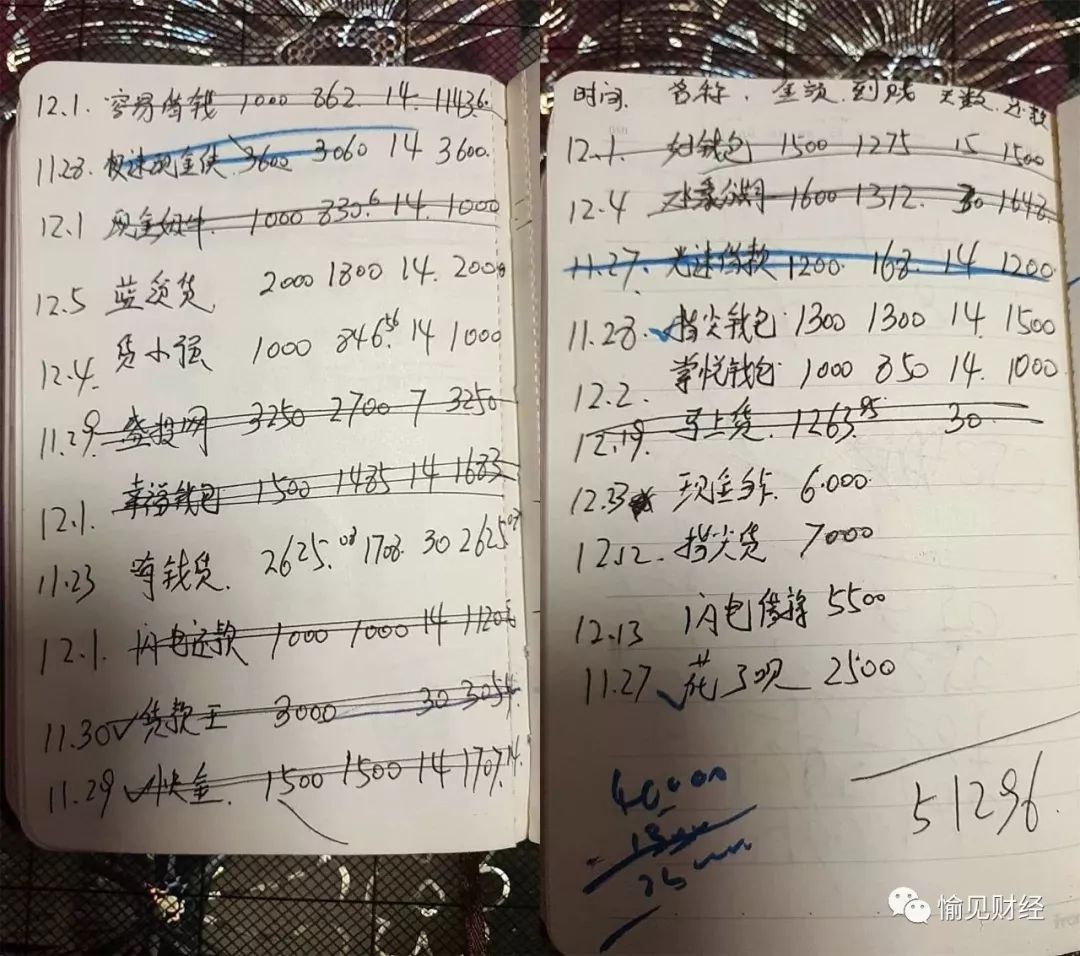 12.1. 容易借钱 1000 862. 14. 1143.6
11.28. 极速现金侠 3600 3060 14 3600.
12.1 现金蜗牛 1000 830.6 14. 1000
12.5 蓝领贷 2000 1800 14. 2000
12.4. 贷小强 1000 846.56 14 1000
11.29. 盛投网 3250 2700 7 3250
12.1. 幸福钱包 1500 1485 14 1683
11.23 有钱贷. 2625.08 1708. 30 2625.08
12.1. 闪电还款 1000 1000 14 1120
11.30 ✓贷款王 3000 30 3054
11.29 ✓快金. 1500 1500 14 1707.14
时间. 名称. 金额. 到账 天数. 还款
12.1. 钱包 1500 1275 15 1500
12.4 分期 1600 1312. 30 1648
11.27. 光速借款 1200 168. 14 1200
11.28. ✓指尖钱包 1300 1300 14 1500
12.2. 掌悦钱包 1000 850 14. 1000
12.19. 马上贷. 1263.95 30
12.3 现金 6000
12.12. 指尖贷 7000
12.13 闪电借 5500
11.27 ✓花了呗 2500
40000
51296.
愉见财经